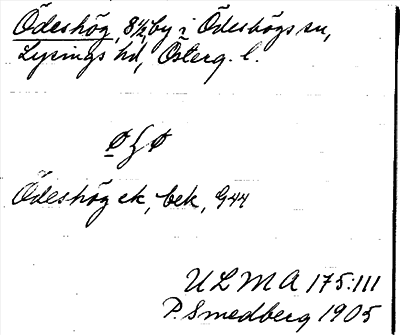 Ödeshög, 8½, by i Ödeshögs sn,
Lysings hd, Österg. l.
Ödeshög ek, bek, G44
ULMA 175:111
P. Smedberg 1905